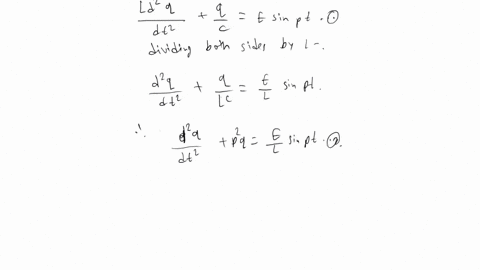 Ld²q/dt² + q/c = E sin pt . ①
dividing both sides by L-.
d²q/dt² + q/LC = E/L sin pt.
∴ d²q/dt² + p²q = E/L sin pt . ②.